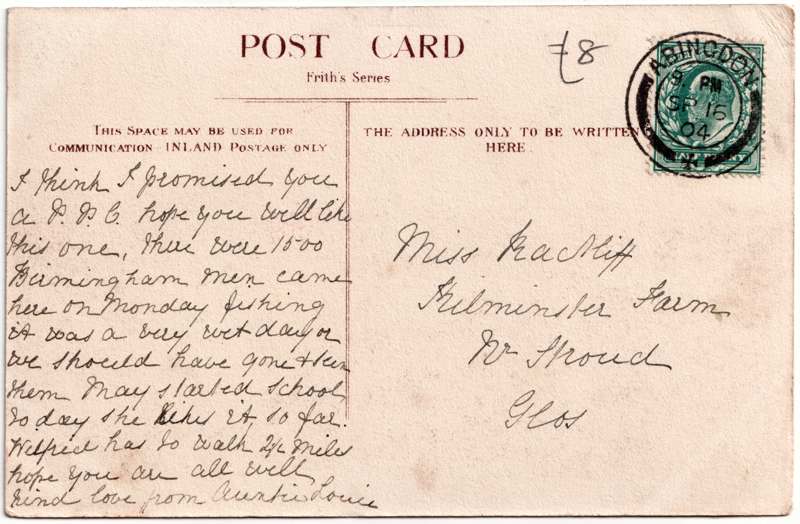 POST CARD
Frith's Series
£8
ABINGDON
8 PM
SP 16
04
THIS SPACE MAY BE USED FOR
COMMUNICATION INLAND POSTAGE ONLY
THE ADDRESS ONLY TO BE WRITTEN
HERE
I think I promised you
a P.P.C. hope you will like
this one, there were 1500
Birmingham men came
here on Monday fishing
it was a very wet day or
we should have gone & seen
them May started school
to day she likes it so far.
Wilfred has to walk 2½ miles
hope you are all well
kind love from Auntie Louie
Miss Ractliff
Kilminster Farm
Nr Stroud
Glos